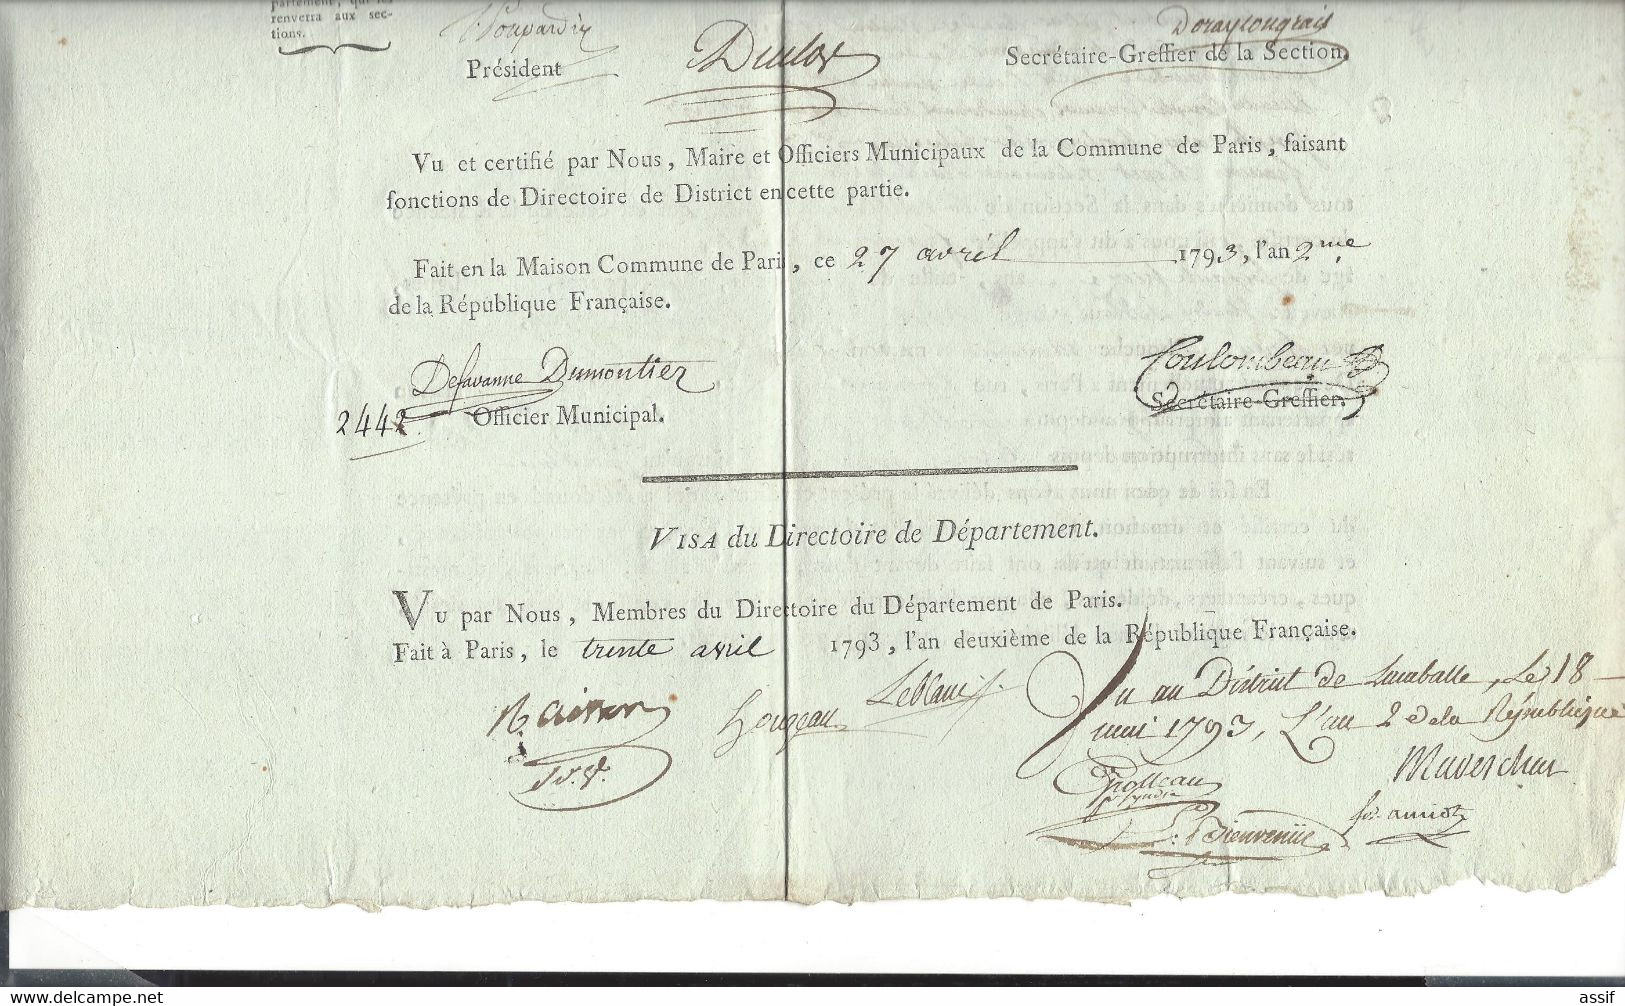 partement, qui les
renverra aux sec-
tions.
Poupardin
Président
Duclos
Secrétaire-Greffier de la Section.
Vu et certifié par Nous, Maire et Officiers Municipaux de la Commune de Paris, faisant
fonctions de Directoire de District en cette partie.
Fait en la Maison Commune de Paris, ce 27 avril 1793, l'an 2me
de la République Française.
Defavanne Dumoutier
Coulombeau
2442.
Officier Municipal.
Secrétaire-Greffier.
VISA du Directoire de Département.
Vu par Nous, Membres du Directoire du Département de Paris.
Fait à Paris, le trente avril 1793, l'an deuxième de la République Française.
Leblanc
Vu au District de Lamballe, Le 18
mai 1793, L'an 2e de la République
Houzeau
Bienvenüe
assif